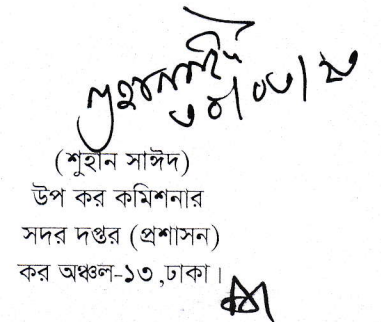 (শুহান সাঈদ)
উপ কর কমিশনার
সদর দপ্তর (প্রশাসন)
কর অঞ্চল-১৩ ,ঢাকা।